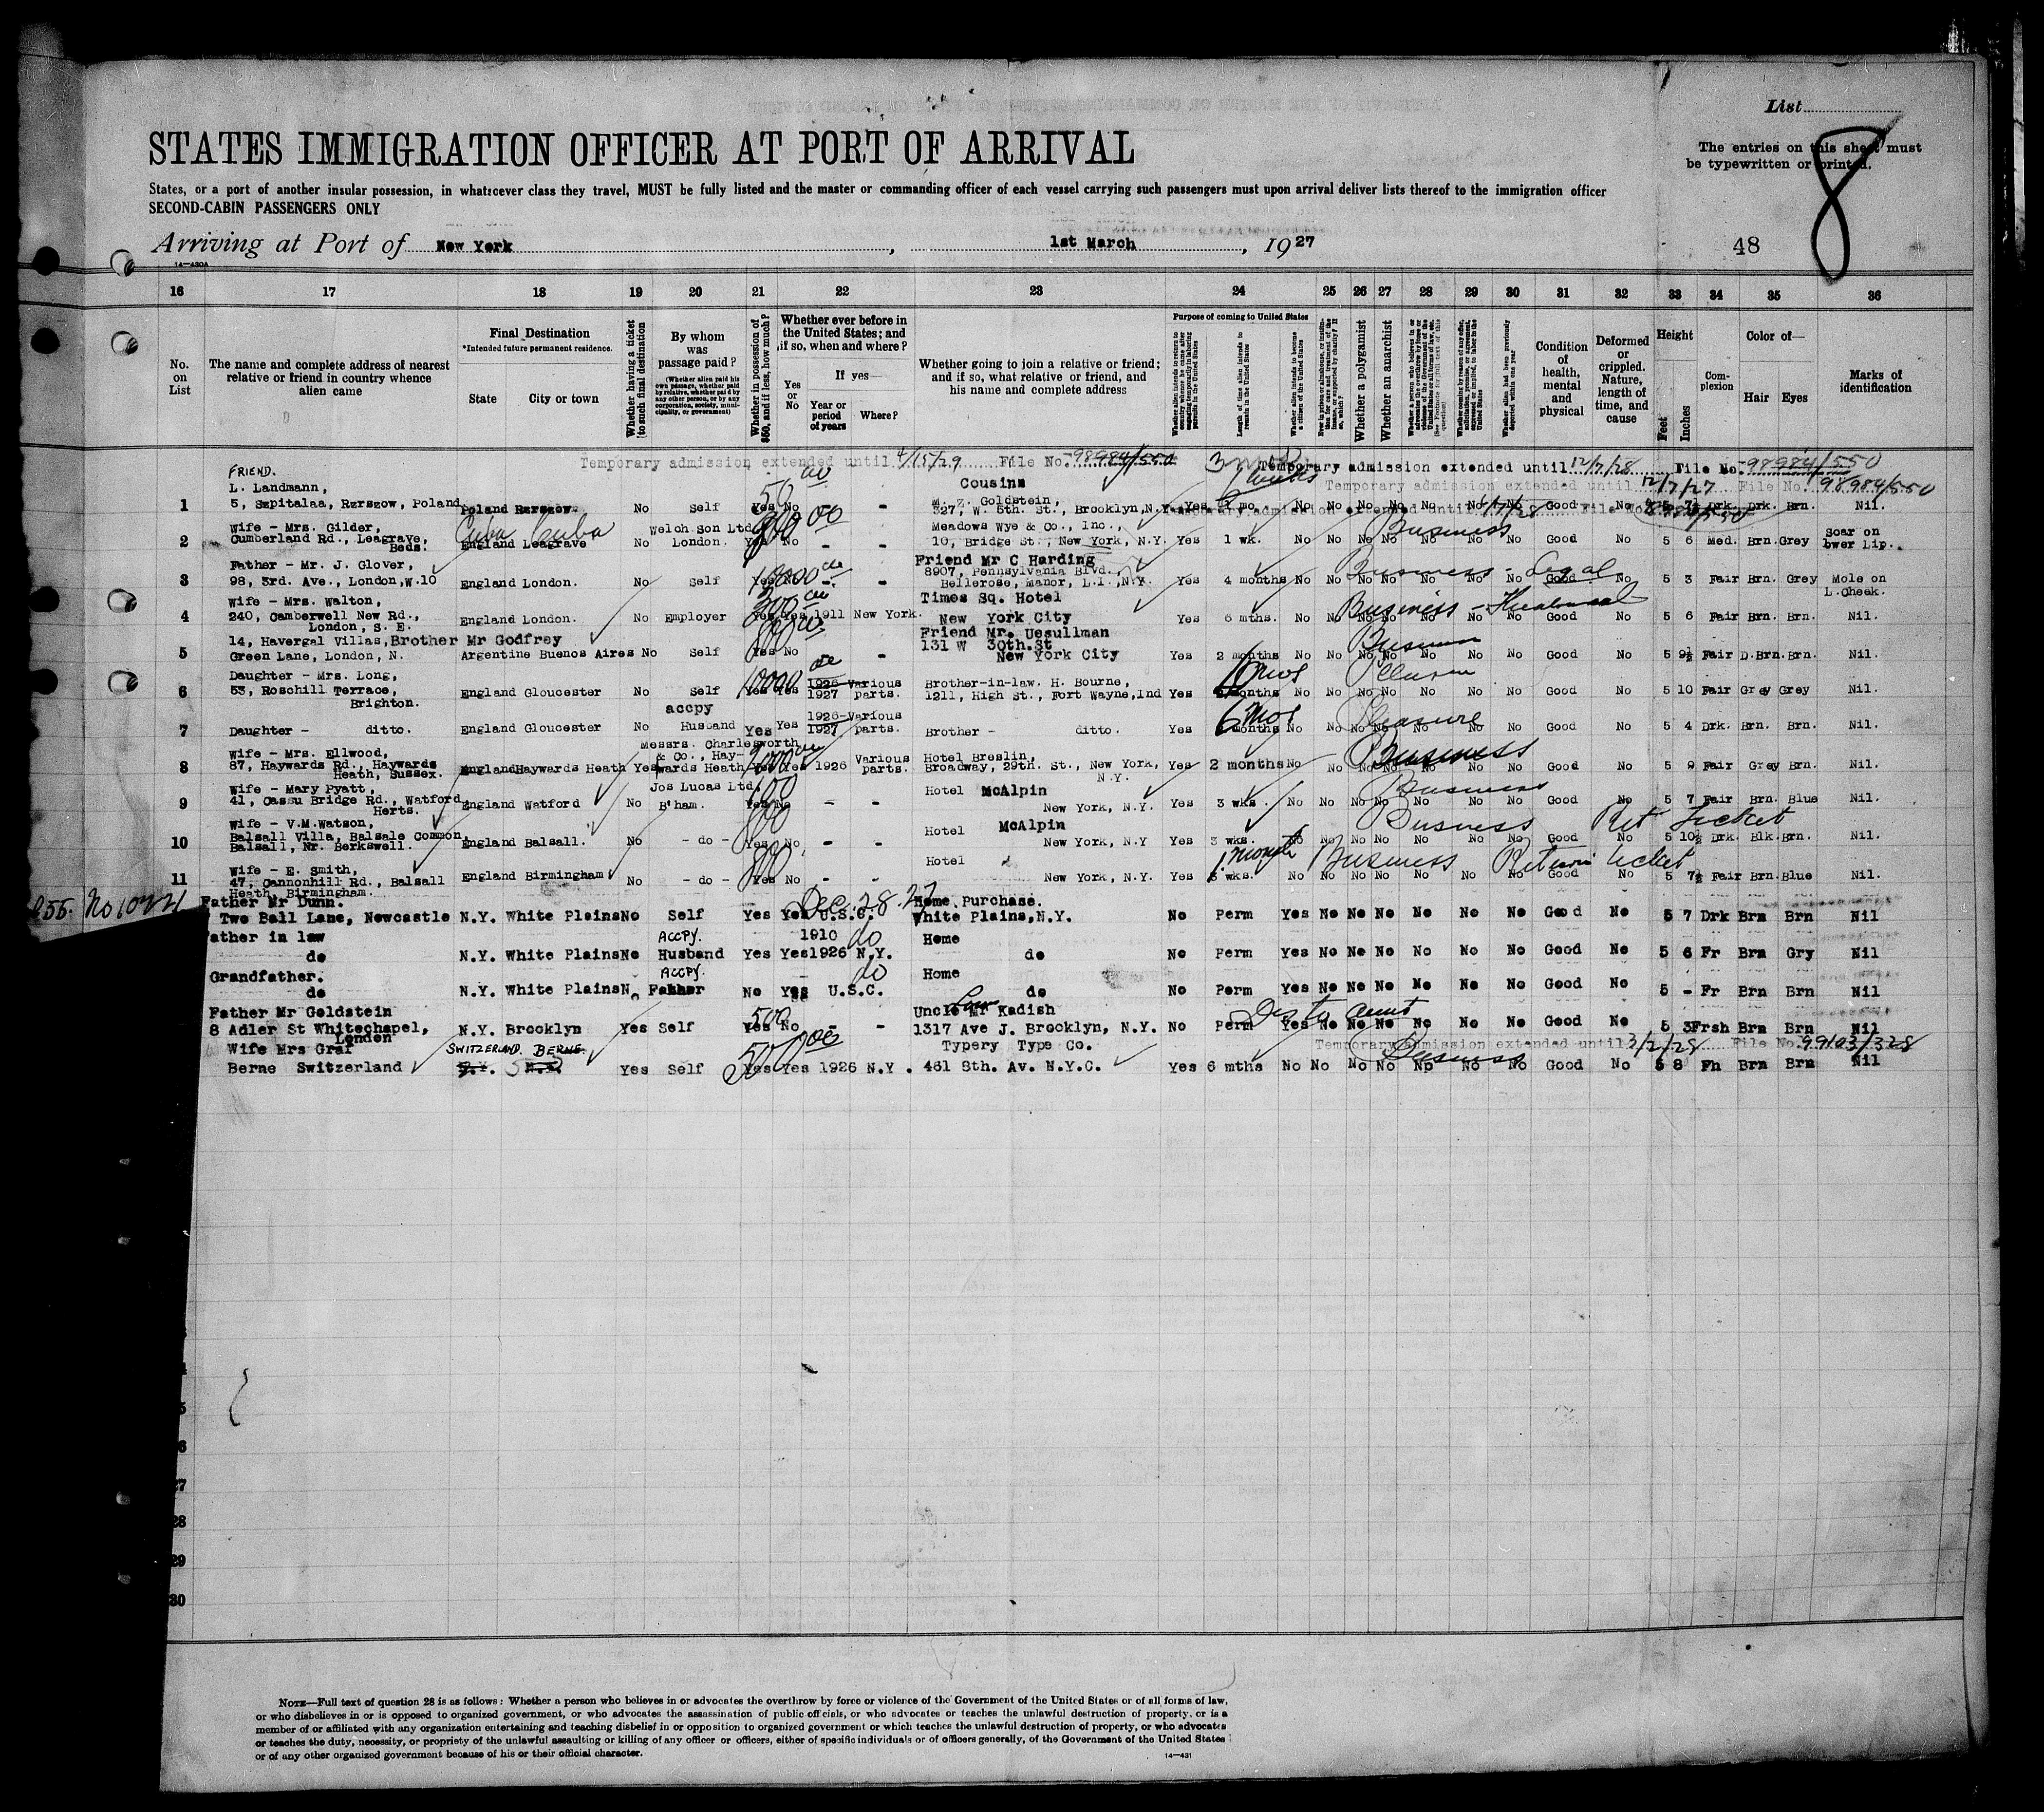 List
The entries on this sheet must
be typewritten or printed.
8
STATES IMMIGRATION OFFICER AT PORT OF ARRIVAL
States, or a port of another insular possession, in whatsoever class they travel, MUST be fully listed and the master or commanding officer of each vessel carrying such passengers must upon arrival deliver lists thereof to the immigration officer
SECOND-CABIN PASSENGERS ONLY
Arriving at Port of New York, 1st March, 1927
48
14—430A
16 17 18 19 20 21 22 23 24 25 26 27 28 29 30 31 32 33 34 35 36
No. on List
The name and complete address of nearest relative or friend in country whence alien came
Final Destination
*Intended future permanent residence.
State City or town
Whether having a ticket to such final destination
By whom was passage paid?
(Whether alien paid his own passage, whether paid by relative, whether paid by any other person, or by any corporation, society, municipality, or government)
Whether in possession of $50, and if less, how much?
Whether ever before in the United States; and if so, when and where?
Yes or No
If yes—
Year or period of years
Where?
Whether going to join a relative or friend; and if so, what relative or friend, and his name and complete address
Purpose of coming to United States
Length of time alien intends to remain in the United States
Whether alien intends to become a citizen of the United States
Whether a polygamist
Whether an anarchist
Whether alien had been previously deported within one year
Condition of health, mental and physical
Deformed or crippled. Nature, length of time, and cause
Height
Feet Inches
Complexion
Color of—
Hair Eyes
Marks of identification
Temporary admission extended until 4/15/29 File No. 98984/550
Temporary admission extended until 12/7/28 File No. 98984/550
Temporary admission extended until 12/7/27 File No. 98984/550
FRIEND.
L. Landmann,
Cousins
1 5, Szpitalaa, Rzrszow, Poland Poland Rzrszow No Self Yes No - M. Z. Goldstein, 327, W. 5th. St., Brooklyn, N.Y. Yes No No Good No Drk. Drk. Brn. Nil.
Wife - Mrs. Gilder, Cuba Cuba Welch Son Ltd Meadows Wye & Co., Inc., Business Scar on
2 Cumberland Rd., Leagrave, Beds. England Leagrave No London. Yes No - - 10, Bridge St., New York, N.Y. Yes 1 wk. No No No No No No No Good No 5 6 Med. Brn. Grey lower Lip.
Father - Mr. J. Glover, Friend Mr C Harding
8907, Pennsylvania Blvd. Business - Legal
3 98, 3rd. Ave., London, W.10 England London. No Self Yes No - - Bellerose, Manor, L.I., N.Y. Yes 4 months No No No No No No No Good No 5 3 Fair Brn. Grey Mole on L. Cheek.
Wife - Mrs. Walton, Times Sq. Hotel Business
4 240, Camberwell New Rd., London, S. E. England London. No Employer Yes Yes 1911 New York. New York City Yes 6 mths. No No No No No No No Good No 5 6 Fair Brn. Brn. Nil.
14, Havergal Villas, Brother Mr Godfrey Friend Mr. Uesullman
131 W 30th.St
5 Green Lane, London, N. Argentine Buenos Aires No Self Yes No - - New York City Yes 2 months No No No No No No No Good No 5 9½ Fair D.Brn. Brn. Nil.
Daughter - Mrs. Long, 1926 Various Brother-in-law. H. Bourne,
6 53, Rosehill Terrace, Brighton. England Gloucester No Self Yes Yes 1927 parts. 1211, High St., Fort Wayne, Ind Yes months No No No No No No No Good No 5 10 Fair Grey Grey Nil.
accpy 1926-Various 6 mos Pleasure
7 Daughter - ditto. England Gloucester No Husband Yes Yes 1927 parts. Brother - ditto. Yes months No No No No No No No Good No 5 4 Drk. Brn. Brn. Nil.
Messrs. Charlesworth
Wife - Mrs. Ellwood, & Co., Hay- Hotel Breslin, Business
8 87, Haywards Rd., Haywards Heath, Sussex. England Haywards Heath Yes wards Heath Yes Yes 1926 Various parts. Broadway, 29th. St., New York, N.Y. Yes 2 months No No No No No No No Good No 5 9 Fair Grey Brn. Nil.
Wife - Mary Pyatt, Jos Lucas Ltd. Hotel McAlpin Business
9 41, Cassu Bridge Rd., Watford, Herts. England Watford No B'ham. Yes No - - New York, N.Y. Yes 3 wks. No No No No No No No Good No 5 7 Fair Brn. Blue Nil.
Wife - V.M.Watson, Hotel McAlpin Business Ret Ticket
10 Balsall Villa, Balsale Common, Balsall, Nr. Berkswell. England Balsall. No - do - Yes No - - New York, N.Y Yes 3 wks. No No No No No No No Good No 5 10½ Drk. Blk. Brn. Nil.
Wife - E. Smith, Hotel 1 month Business Return ticket
11 47, Cannonhill Rd., Balsall Heath, Birmingham. England Birmingham No - do - Yes No - - New York, N.Y. Yes wks. No No No No No No No Good No 5 7½ Fair Brn. Blue Nil.
Father Mr Dunn. Dec. 28. 27 Home Purchase.
Two Ball Lane, Newcastle N.Y. White Plains No Self Yes Yes U.S.C. White Plains, N.Y. No Perm Yes No No No No No No Good No 5 7 Drk Brn Brn Nil
ather in law ACCPY. 1910 do Home
do N.Y. White Plains No Husband Yes Yes 1926 N.Y. do No Perm Yes No No No No No No Good No 5 6 Fr Brn Gry Nil
Grandfather. ACCPY. do Home
do N.Y. White Plains No Father No Yes U.S.C. do No Perm Yes No No No No No No Good No 5 - Fr Brn Brn Nil
Father Mr Goldstein 500 Uncle Mr Kadish
8 Adler St Whitechapel, London N.Y. Brooklyn Yes Self Yes No - - 1317 Ave J. Brooklyn, N.Y. No Perm Yes No No No No No No Good No 5 3 Frsh Brn Brn Nil
Wife Mrs Graf SWITZERLAND. BERNE. Typery Type Co. Temporary admission extended until 3/2/28 File No. 99103/328
Business
Berne Switzerland Yes Self Yes Yes 1926 N.Y. 461 8th. Av. N.Y.C. Yes 6 mths No No No No No No No Good No 5 8 Fh Brn Brn Nil
27
28
29
30
NOTE—Full text of question 28 is as follows: Whether a person who believes in or advocates the overthrow by force or violence of the Government of the United States or of all forms of law,
or who disbelieves in or is opposed to organized government, or who advocates the assassination of public officials, or who advocates or teaches the unlawful destruction of property, or is a
member of or affiliated with any organization entertaining and teaching disbelief in or opposition to organized government or which teaches the unlawful destruction of property, or who advocates
or teaches the duty, necessity, or propriety of the unlawful assaulting or killing of any officer or officers, either of specific individuals or of officers generally, of the Government of the United States
or of any other organized government because of his or their official character.
14—431